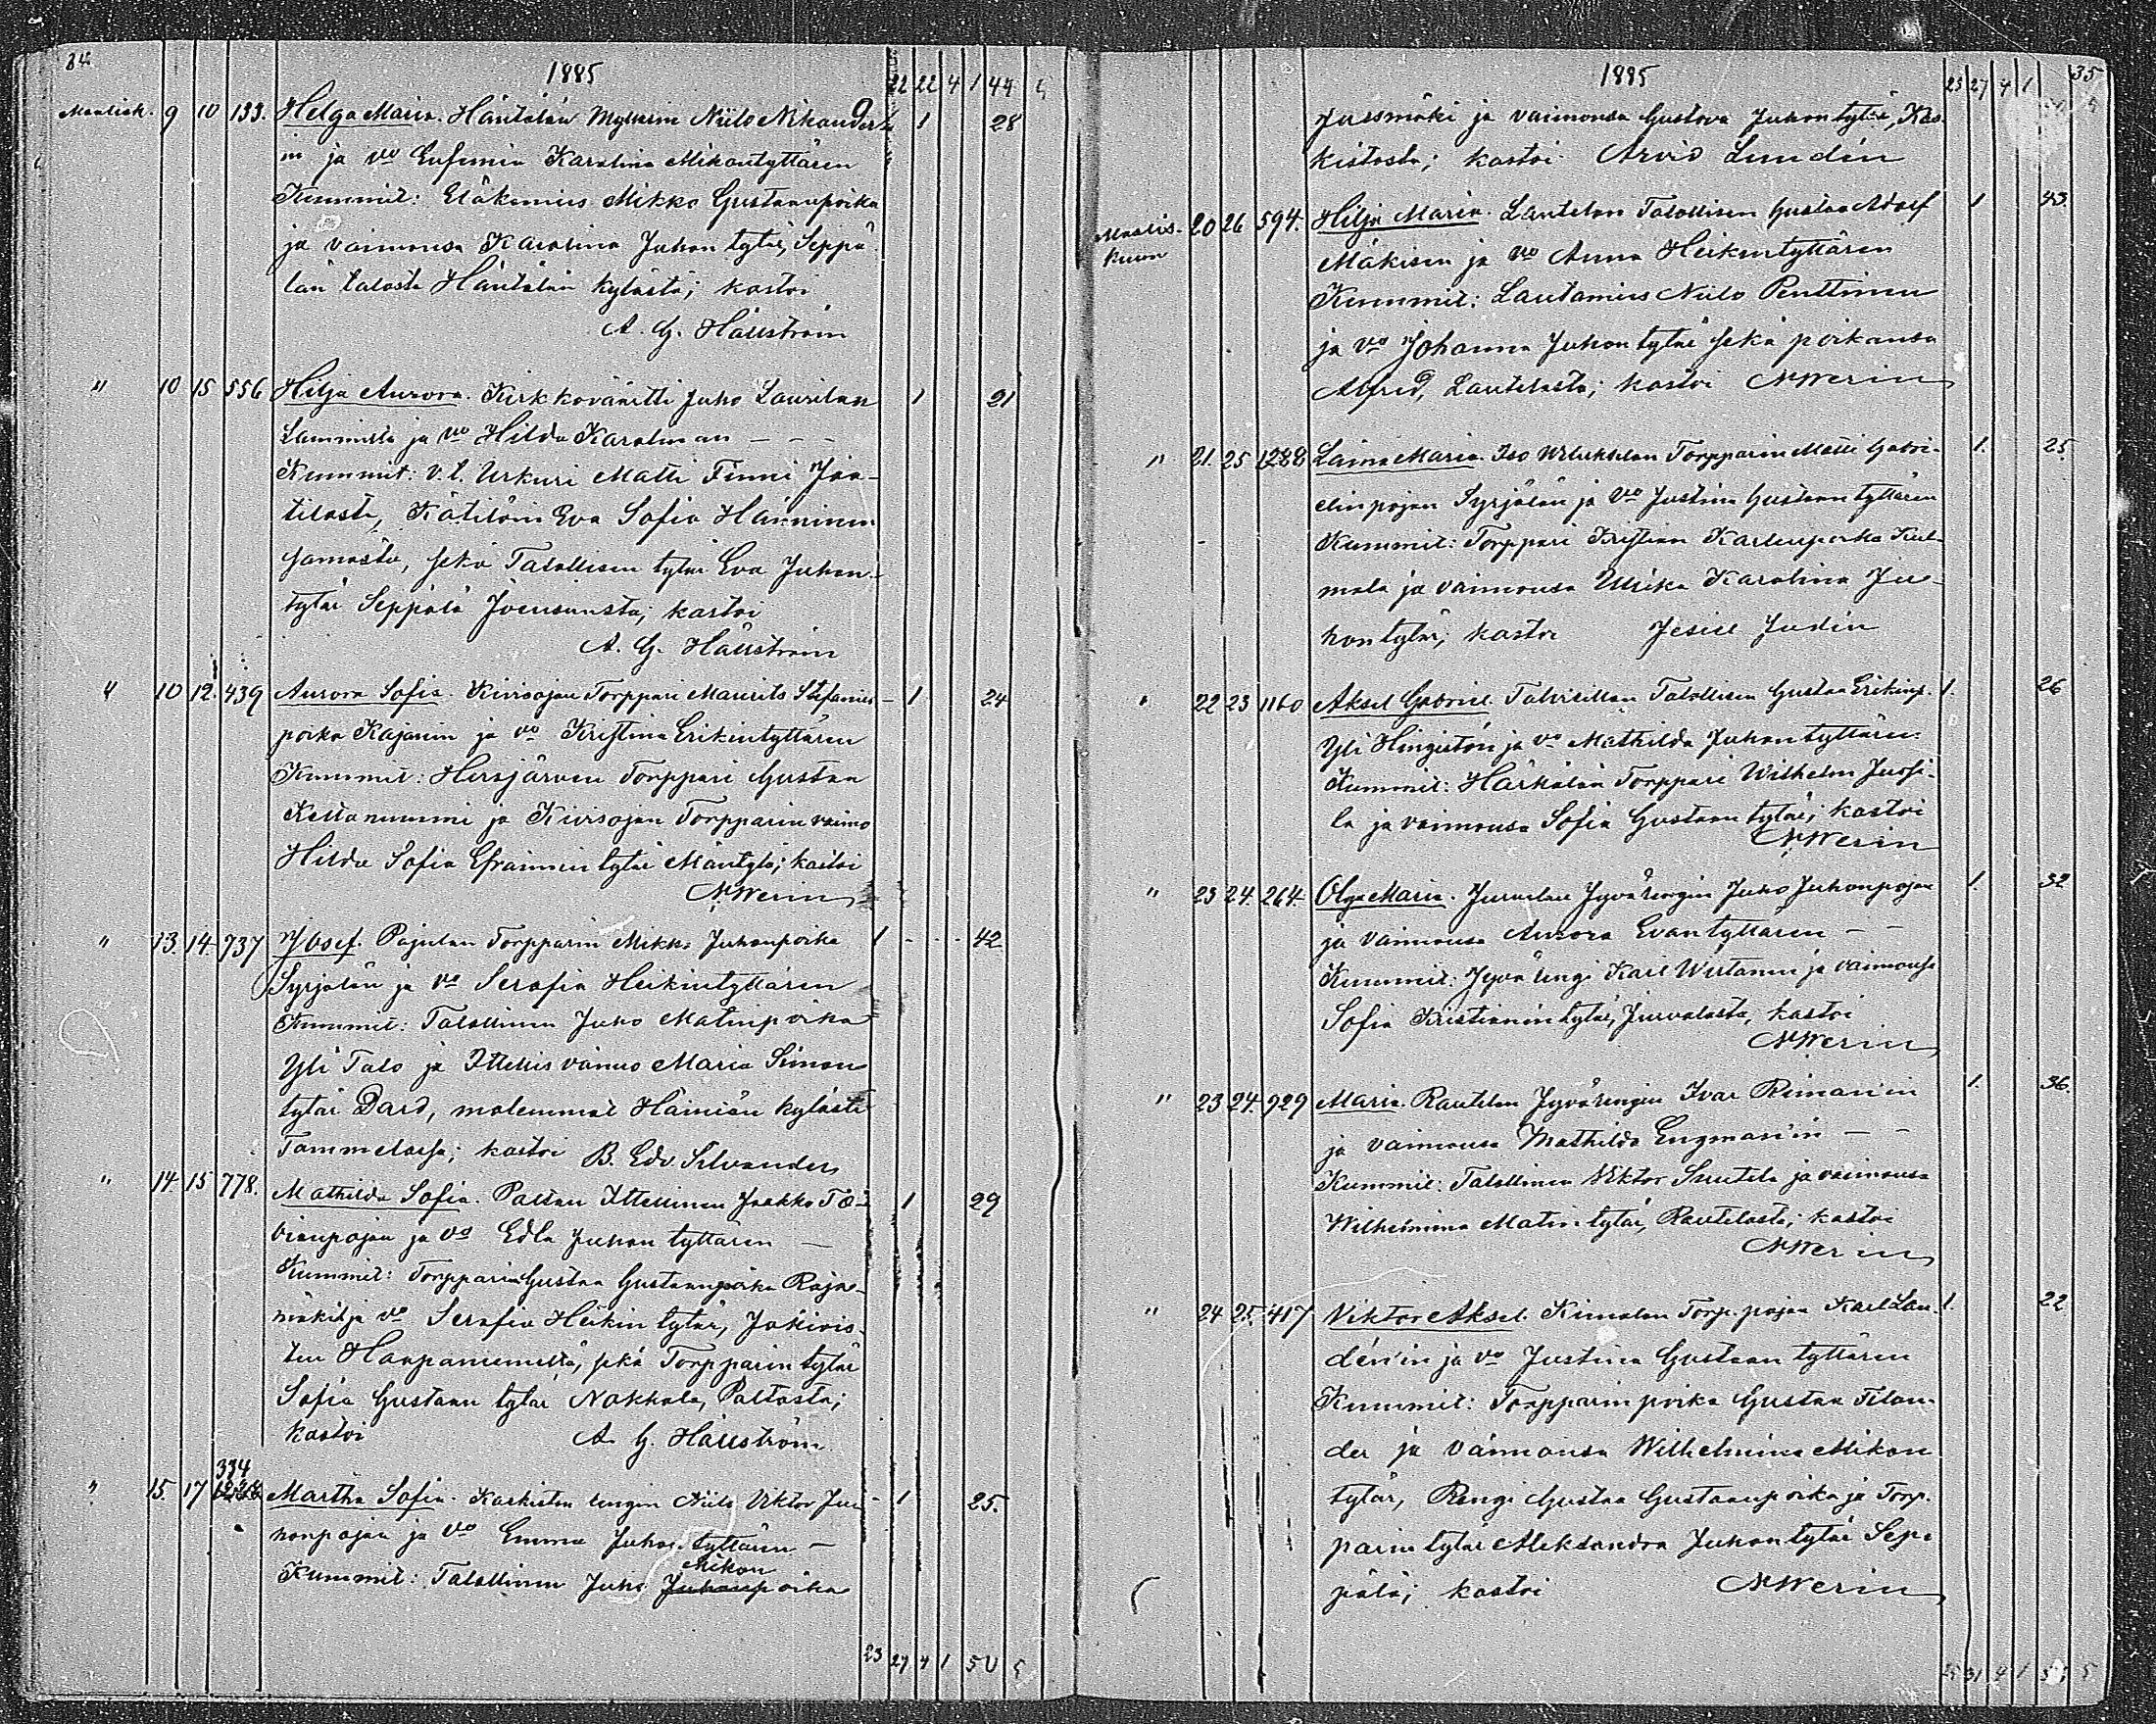 34
1885
22 22 4 1 44 5
Maalisk. 9 10 133. Helga Maria. Häntälän Myllärin Niilo Nikander- 1 28
in ja vo Eufemia Karolina Mikontyttären
Kummit: Eläkemies Mikko Gustaanpoika
ja vaimonsa Karolina Juhontytär, Seppä-
län talosta Häntälän kylästä; kastoi
A. G. Hällström
" 10 15 556 Hilja Aurora. Kirkkoväärtti Juho Laurilan 1 21
Lammilta ja vo Hilda Karolinan - - -
Kummit: v.t. Urkuri Matti Finni Jaa-
tilasta, Kätilöin Eva Sofia Hänninen
samasta, sekä Talollisen tytär Eva Juhon-
tytär Seppälä Joensuusta; kastoi
A. G. Hällström
" 10 12. 439 Aurora Sofia. Kiirisojan Torppari Maurits Stefanin- 1 24
poika Kajanin ja vo Kristina Erikintyttären
Kummit: Hirsjärven Torppari Gustaa
Keltanummi ja Kiirisojan Torpparin vaimo
Hilda Sofia Efraimintytär Mäntylä; kastoi
N. Werin
" 13. 14. 737 Josef. Pajulan Torpparin Mikko Juhonpoika 1 42
Syrjälän ja vo Serafia Heikintyttären
Kummit: Talollinen Juho Matinpoika
Yli Talo ja Ittellis vaimo Maria Simon
tytär Dard, molemmat Häiniön kylästä
Tammelassa; kastoi B. Edv. Silvander
" 14. 15 778. Mathilda Sofia. Paltan Ittellinen Jaakko To- 1 29
vianpojan ja vo Edla Juhon tyttären —
Kummit: Torpparin Gustaa Gustaanpoika Raja-
mäki ja vo Serafia Heikin tytär, Jakivis-
ten Haapaniemeltä, sekä Torpparin tytär
Sofia Gustaan tytär Nokkala, Paltasta;
kastoi A. G. Hällström
334
" 15. 17 Martha Sofia. Kaskiston rengin Niilo Viktor Ju- 1 25.
honpojan ja vo Emma Juhon tyttären —
Mikon
Kummit: Talollinen Juho Juhanpoika
23 27 4 1 50 5
1885
35
25 27 4 1 5
Jussmäki ja vaimonsa Gustava Juhontytär, Kas-
kistosta; kastoi Arvid Lundén
Maalis- 20 26 594. Hilja Maria. Lautelan Talollisen Gustaa Adolf 1 43.
kuun
Mäkisen ja vo Anna Heikintyttären
Kummit: Lautamies Niilo Penttinen
ja vo Johanna Juhontytär sekä poikansa
Alfred, Lautelasta; kastoi N. Werin
" 21. 25 1288 Laina Maria. Iso Wilukselan Torpparin Matti Gabri- 1. 25.
elinpojan Syrjälän ja vo Justina Gustaan tyttären
Kummit: Torppari Kristian Karlenpoika Kul-
mala ja vaimonsa Ulrika Karolina Ju-
hontytär; kastoi Jesiel Judin
" 22 23 1160 Aksel Gabriel. Talvisillan Talollisen Gustaa Erikinp. 1. 26
Yli Hingistön ja vo Mathilda Juhontyttären
Kummit: Härkälän Torppari Wilhelm Jussi-
la ja vaimonsa Sofia Gustaan tytär; kastoi
N. Werin
" 23 24. 264. Olga Maria. Jurvalan Jyvärengin Juho Juhonpojan 1. 32
ja vaimonsa Aurora Evantyttären — —
Kummit: Jyvä rengi Karl Wirtanen ja vaimonsa
Sofia Kristianin tytär, Jurvalasta, kastoi
N. Werin
" 23 24. 929 Maria. Rautelan Jyvärengin Ivar Riman'in 1. 36.
ja vaimonsa Mathilda Engman'in — —
Kummit: Talollinen Viktor Suutela ja vaimonsa
Wilhelmina Matintytär, Rautelasta; kastoi
N. Werin
" 24 25. 417 Viktor Aksel. Kimalan Torp. pojan Karl Lau- 1. 22
dén'in ja vo Justina Gustaan tyttären
Kummit: Torpparin poika Gustaa Filan-
der ja vaimonsa Wilhelmina Mikon
tytär, Rengi Gustaa Gustaanpoika ja Torp-
parin tytär Aleksandra Juhontytär Sep-
pälä; kastoi N. Werin
25 31 4 1 5